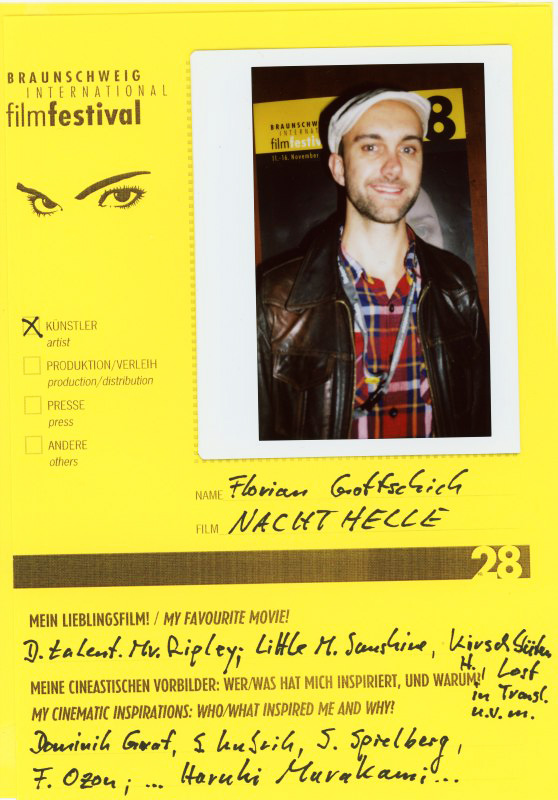 BRAUNSCHWEIG
INTERNATIONAL
filmfestival
BRAUNSCHW
INTERNAT
filmfestiv
11.-16. November
8
X KÜNSTLER
artist
PRODUKTION/VERLEIH
production/distribution
PRESSE
press
ANDERE
others
NAME Florian Gottschick
FILM NACHTHELLE
28
MEIN LIEBLINGSFILM! / MY FAVOURITE MOVIE!
D. talent. Mr. Ripley; Little M. Sunshine, Kirschblüten
H., Lost
in Transl.
u.v.m.
MEINE CINEASTISCHEN VORBILDER: WER/WAS HAT MICH INSPIRIERT, UND WARUM?
MY CINEMATIC INSPIRATIONS: WHO/WHAT INSPIRED ME AND WHY?
Dominik Graf, S. Kubrik, S. Spielberg,
F. Ozon; ... Haruki Murakami...